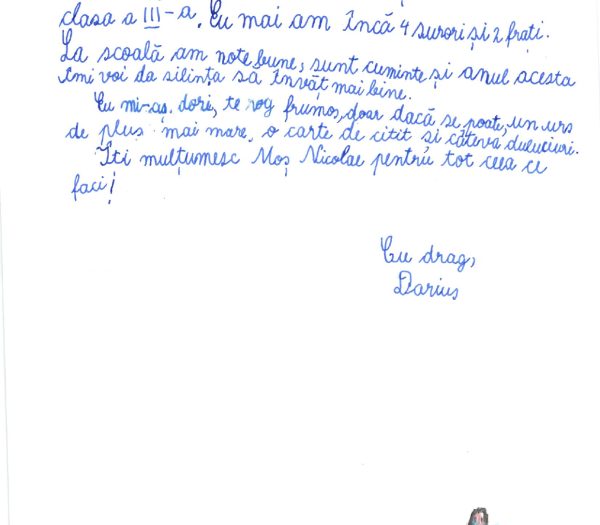 clasa a III-a. Eu mai am încă 4 surori și 2 frați.
La școală am note bune, sunt cuminte și anul acesta
îmi voi da silința să învăț mai bine.
Eu mi-aș dori, te rog frumos, doar dacă se poate, un urs
de pluș mai mare, o carte de citit și câteva dulciuri.
Iti mulțumesc Moș Nicolae pentru tot ceea ce
faci!
Cu drag,
Darius